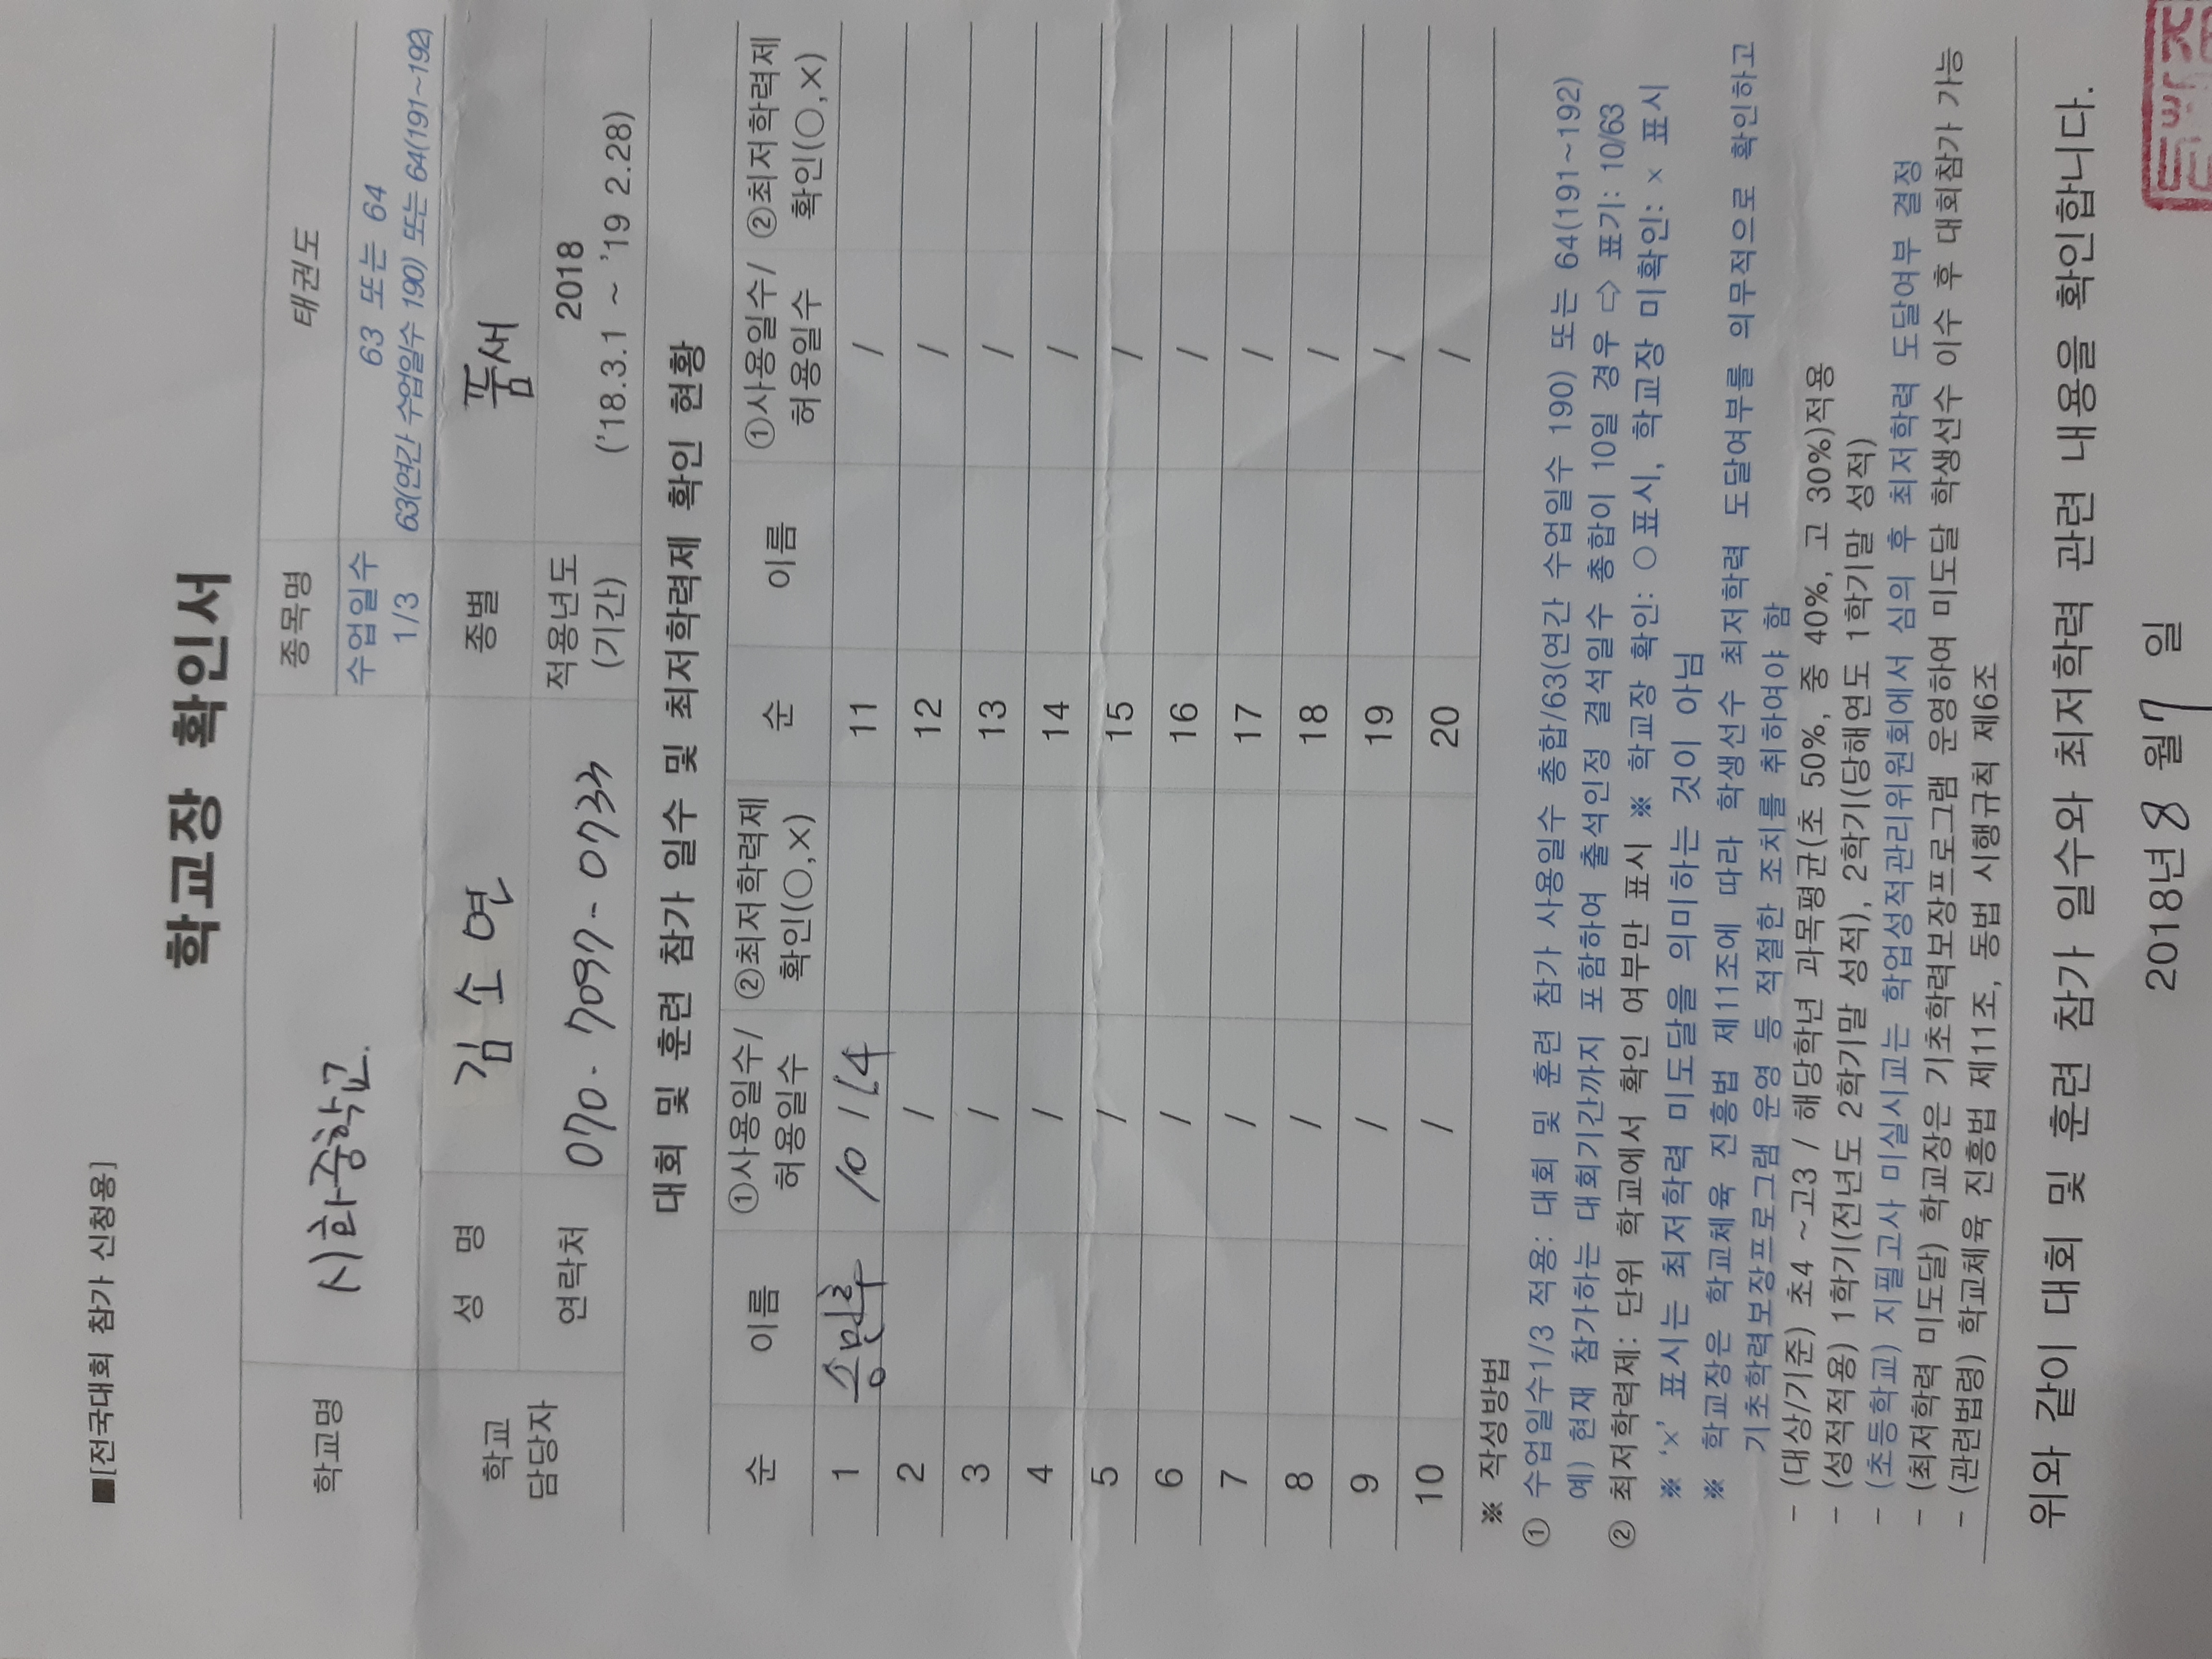 ■[전국대회 참가 신청용]
학교장 확인서
학교명 시화중학교. 종목명 태권도
수업일수 1/3 63 또는 64
63(연간 수업일수 190) 또는 64(191~192)
학교 담당자 성 명 김소연 종별 품새
연락처 070-7097-0733 적용년도 (기간) 2018
('18.3.1 ~ '19 2.28)
대회 및 훈련 참가 일수 및 최저학력제 확인 현황
순 이름 ①사용일수/ 허용일수 ②최저학력제 확인(○,×) 순 이름 ①사용일수/ 허용일수 ②최저학력제 확인(○,×)
1 10 / 64 11 /
2 / 12 /
3 / 13 /
4 / 14 /
5 / 15 /
6 / 16 /
7 / 17 /
8 / 18 /
9 / 19 /
10 / 20 /
※ 작성방법
① 수업일수1/3 적용: 대회 및 훈련 참가 사용일수 총합/63(연간 수업일수 190) 또는 64(191~192)
예) 현재 참가하는 대회기간까지 포함하여 출석인정 결석일수 총합이 10일 경우 ⇨ 표기: 10/63
② 최저학력제: 단위 학교에서 확인 여부만 표시 ※ 학교장 확인: ○ 표시, 학교장 미확인: × 표시
※ '×' 표시는 최저학력 미도달을 의미하는 것이 아님
※ 학교장은 학교체육 진흥법 제11조에 따라 학생선수 최저학력 도달여부를 의무적으로 확인하고
기초학력보장프로그램 운영 등 적절한 조치를 취하여야 함
- (대상/기준) 초4 ~고3 / 해당학년 과목평균(초 50%, 중 40%, 고 30%)적용
- (성적적용) 1학기(전년도 2학기말 성적), 2학기(당해연도 1학기말 성적)
- (초등학교) 지필고사 미실시교는 학업성적관리위원회에서 심의 후 최저학력 도달여부 결정
- (최저학력 미도달) 학교장은 기초학력보장프로그램 운영하여 미도달 학생선수 이수 후 대회참가 가능
- (관련법령) 학교체육 진흥법 제11조, 동법 시행규칙 제6조
위와 같이 대회 및 훈련 참가 일수와 최저학력 관련 내용을 확인합니다.
2018년 8 월 7 일